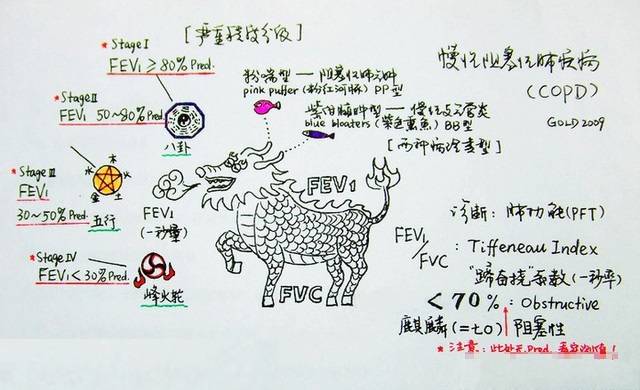 [严重程度分级]
* Stage I
FEV₁ ≥ 80% Pred.
* Stage II
FEV₁ 50~80% Pred.
八卦
* Stage III
FEV₁
30~50% Pred.
木
火
水
金
土
五行
* Stage IV
FEV₁ < 30% Pred.
烽火轮
粉喘型 — 阻塞性肺气肿
pink puffer (粉红河豚) PP型
紫绀臃肿型 — 慢性支气管炎
blue bloaters (紫色熏鱼) BB型
[两种病理类型]
慢性阻塞性肺疾病
(COPD)
GOLD 2009
FEV₁
(一秒量)
FEV₁
FVC
诊断: 肺功能(PFT)
FEV₁/FVC : Tiffeneau Index
"蹄白挠系数(一秒率)
< 70% : Obstructive
麒麟(=七0) 阻塞性
* 注意: 此处无 Pred.